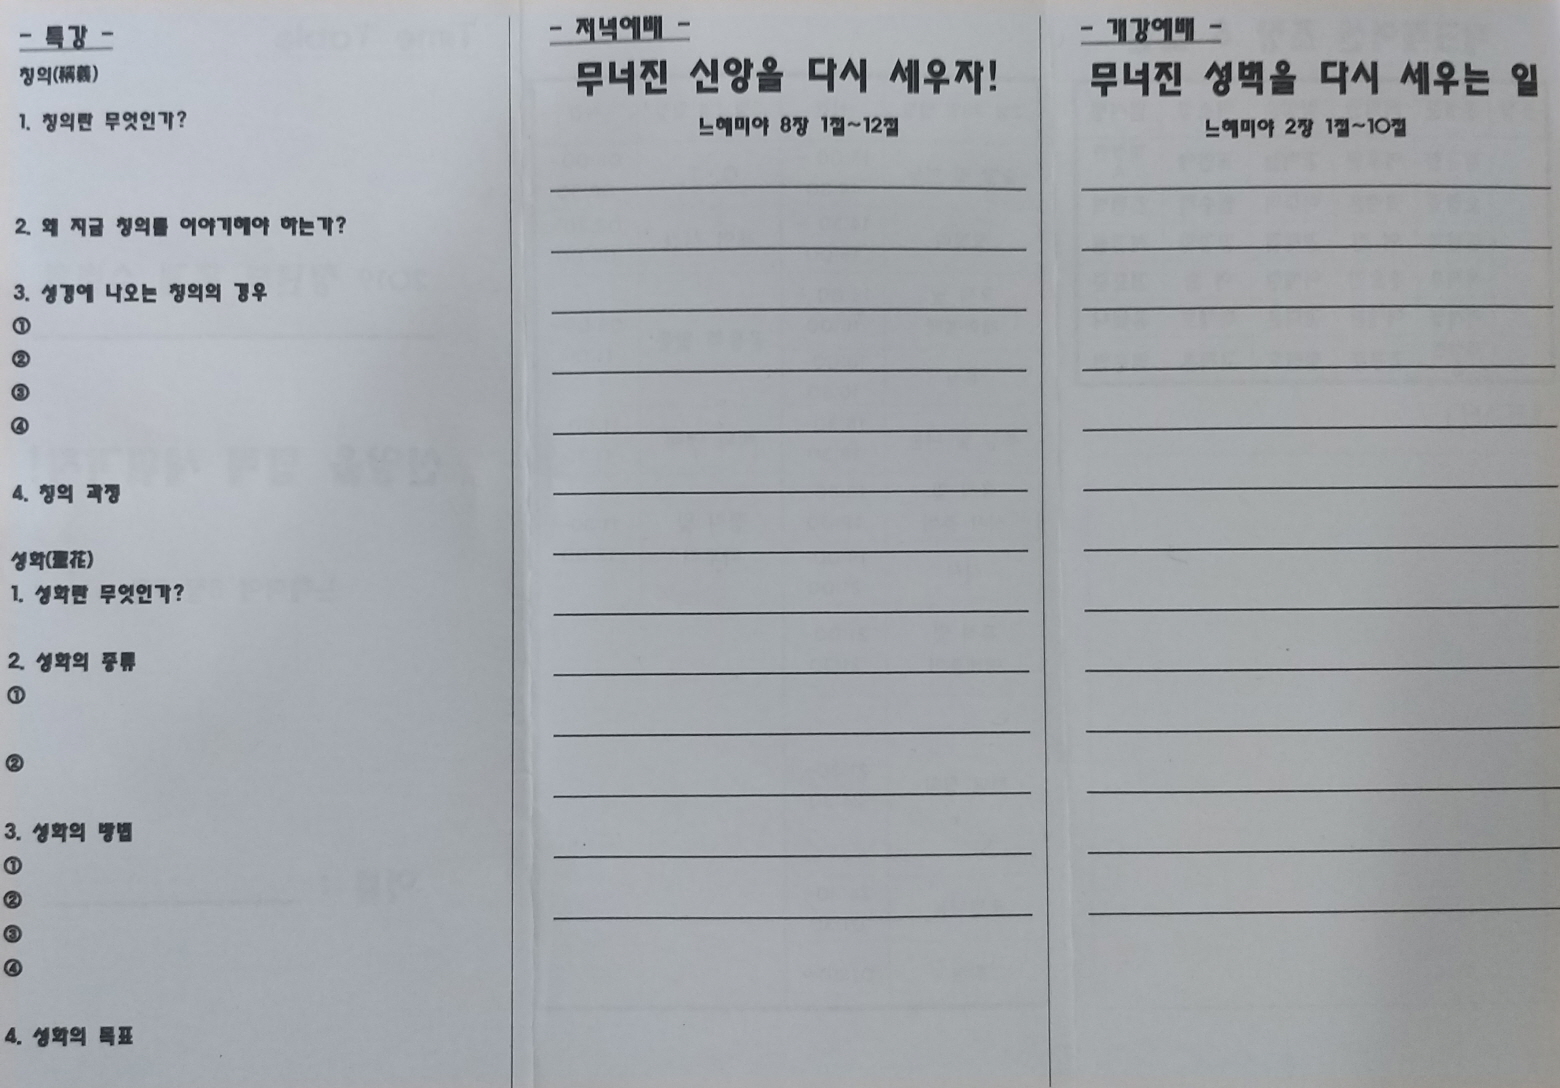 - 특강 -
칭의(稱義)
1. 칭의란 무엇인가?
2. 왜 지금 칭의를 이야기해야 하는가?
3. 성경에 나오는 칭의의 경우
①
②
③
④
4. 칭의 과정
성화(聖花)
1. 성화란 무엇인가?
2. 성화의 종류
①
②
3. 성화의 방법
①
②
③
④
4. 성화의 목표
- 저녁예배 -
무너진 신앙을 다시 세우자!
느헤미야 8장 1절~12절
- 개강예배 -
무너진 성벽을 다시 세우는 일
느헤미야 2장 1절~10절